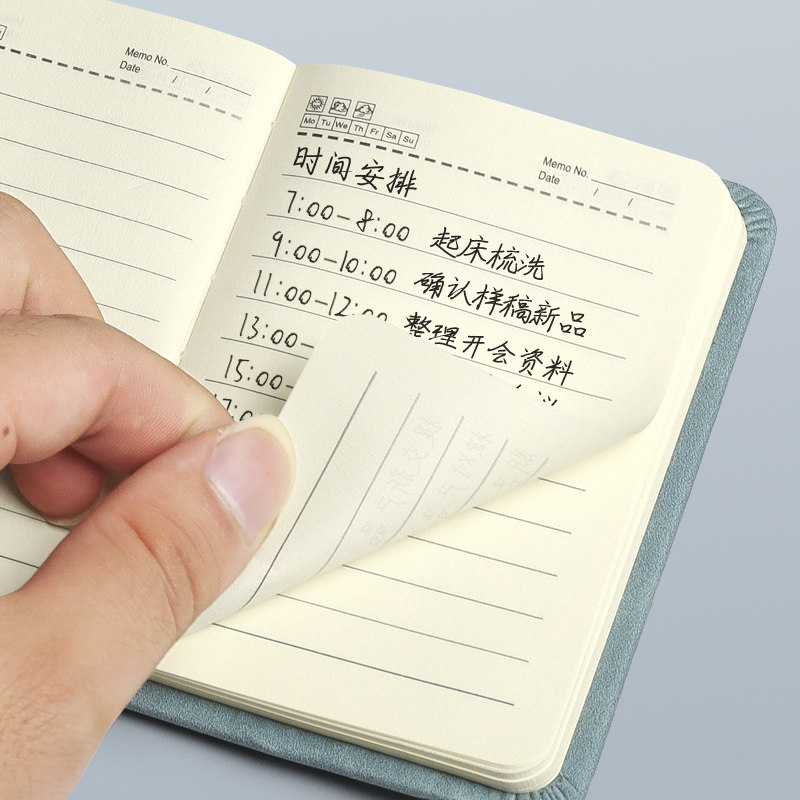 Memo No.
Date / /
Mo Tu We Th Fr Sa Su
Memo No.
Date / /
时间安排
7:00-8:00 起床梳洗
9:00-10:00 确认样稿新品
11:00-12:00 整理开会资料
13:00-
15:00-